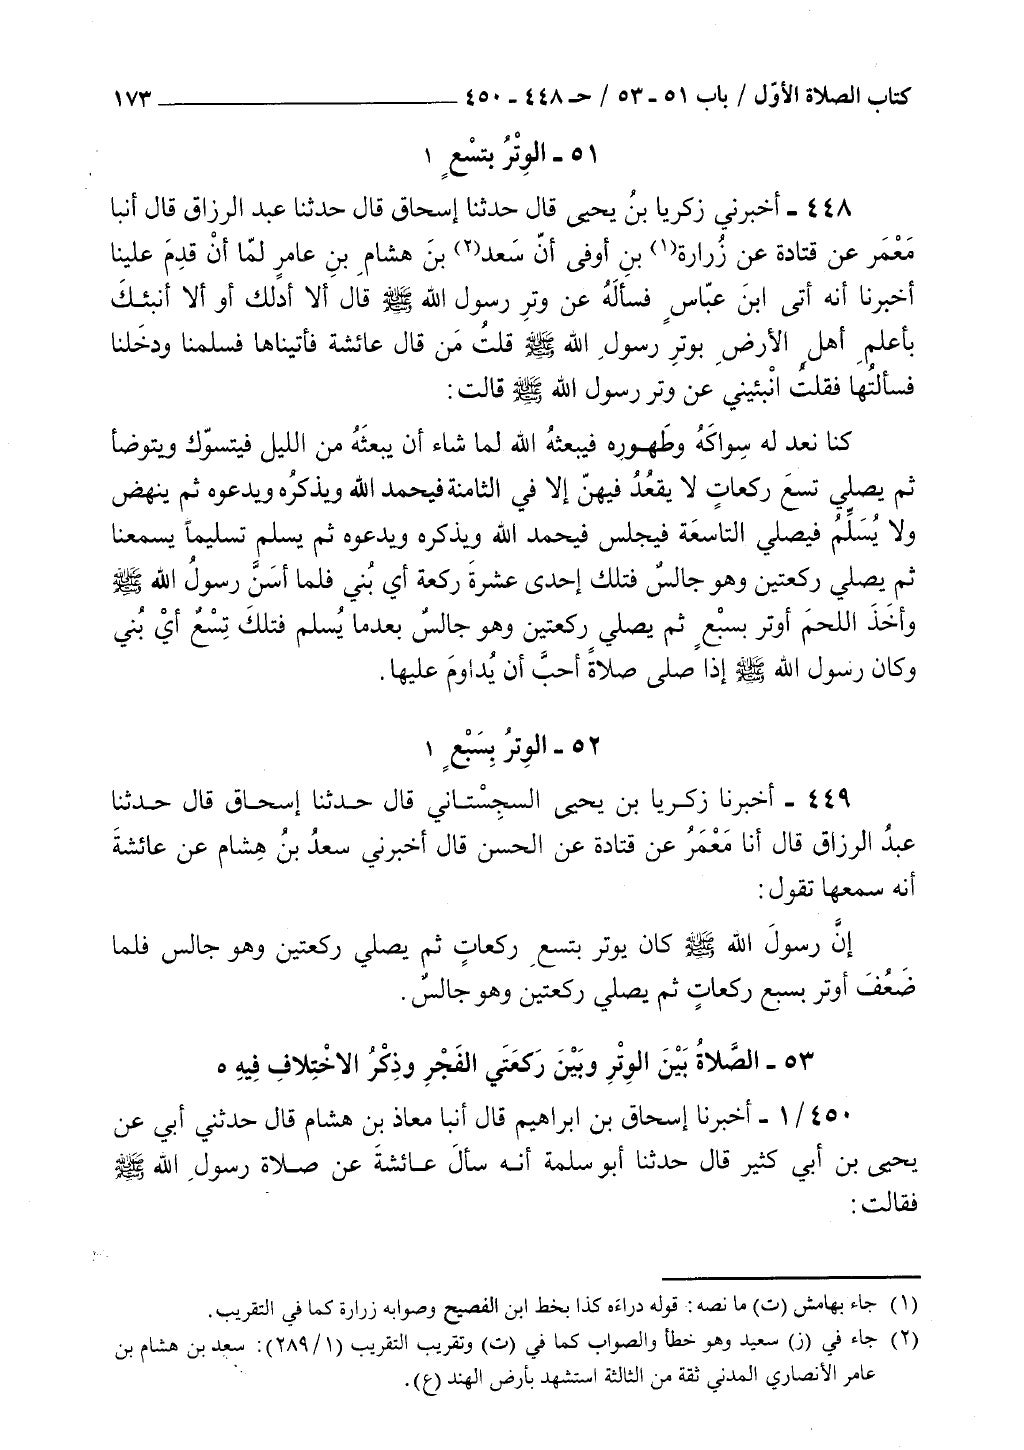 كتاب الصلاة الأوّل / باب ٥١ ـ ٥٣ / حـ ٤٤٨ ـ ٤٥٠ ١٧٣
٥١ ـ الوِتْرُ بتسْعٍ ١
٤٤٨ ـ أخبرني زكريا بنُ يحيى قال حدثنا إسحاق قال حدثنا عبد الرزاق قال أنبا
مَعْمَر عن قتادة عن زُرارة(١) بنِ أوفى أنّ سَعد(٢) بنَ هشامِ بنِ عامرٍ لمّا أنْ قدِمَ علينا
أخبرنا أنه أتى ابنَ عبّاسٍ فسألَهُ عن وترِ رسول الله ﷺ قال ألا أدلك أو ألا أنبئكَ
بأعلمِ أهل الأرضِ بوترِ رسولِ الله ﷺ قلتُ مَن قال عائشة فأتيناها فسلمنا ودخَلنا
فسألتُها فقلتُ انْبئيني عن وتر رسول الله ﷺ قالت:
كنا نعد له سِواكَهُ وطَهورِه فيبعثهُ الله لما شاء أن يبعثَهُ من الليل فيتسوّك ويتوضأ
ثم يصلي تسعَ ركعاتٍ لا يقعُدُ فيهنّ إلا في الثامنة فيحمد الله ويذكرُه ويدعوه ثم ينهض
ولا يُسَلِّمُ فيصلي التاسعَة فيجلس فيحمد الله ويذكره ويدعوه ثم يسلم تسليماً يسمعنا
ثم يصلي ركعتين وهو جالسٌ فتلك إحدى عشرةَ ركعة أي بُني فلما أسَنَّ رسولُ الله ﷺ
وأخَذَ اللحمَ أوتر بسبْعٍ ثم يصلي ركعتين وهو جالسٌ بعدما يُسلم فتلكَ تِسْعٌ أيْ بُني
وكان رسول الله ﷺ إذا صلى صلاةً أحبَّ أن يُداومَ عليها.
٥٢ ـ الوِترُ بِسَبْعٍ ١
٤٤٩ ـ أخبرنا زكريا بن يحيى السجِسْتاني قال حدثنا إسحاق قال حدثنا
عبدُ الرزاق قال أنا مَعْمَرُ عن قتادة عن الحسن قال أخبرني سعدُ بنُ هِشام عن عائشةَ
أنه سمعها تقول:
إنَّ رسولَ الله ﷺ كان يوتر بتسعِ ركعاتٍ ثم يصلي ركعتين وهو جالس فلما
ضَعُفَ أوتر بسبع ركعاتٍ ثم يصلي ركعتين وهو جالسٌ.
٥٣ ـ الصَّلاةُ بَيْنَ الوِتْرِ وبَيْنَ رَكعَتَي الفَجْرِ وذِكْرُ الاخْتِلافِ فِيهِ ٥
١/٤٥٠ ـ أخبرنا إسحاق بن ابراهيم قال أنبا معاذ بن هشام قال حدثني أبي عن
يحيى بن أبي كثير قال حدثنا أبو سلمة أنه سألَ عائشةَ عن صلاة رسولِ الله ﷺ
فقالت:
(١) جاء بهامش (ت) ما نصه: قوله دراءه كذا بخط ابن الفصيح وصوابه زرارة كما في التقريب.
(٢) جاء في (ز) سعيد وهو خطأ والصواب كما في (ت) وتقريب التقريب (٢٨٩/١): سعد بن هشام بن
عامر الأنصاري المدني ثقة من الثالثة استشهد بأرض الهند (ع).